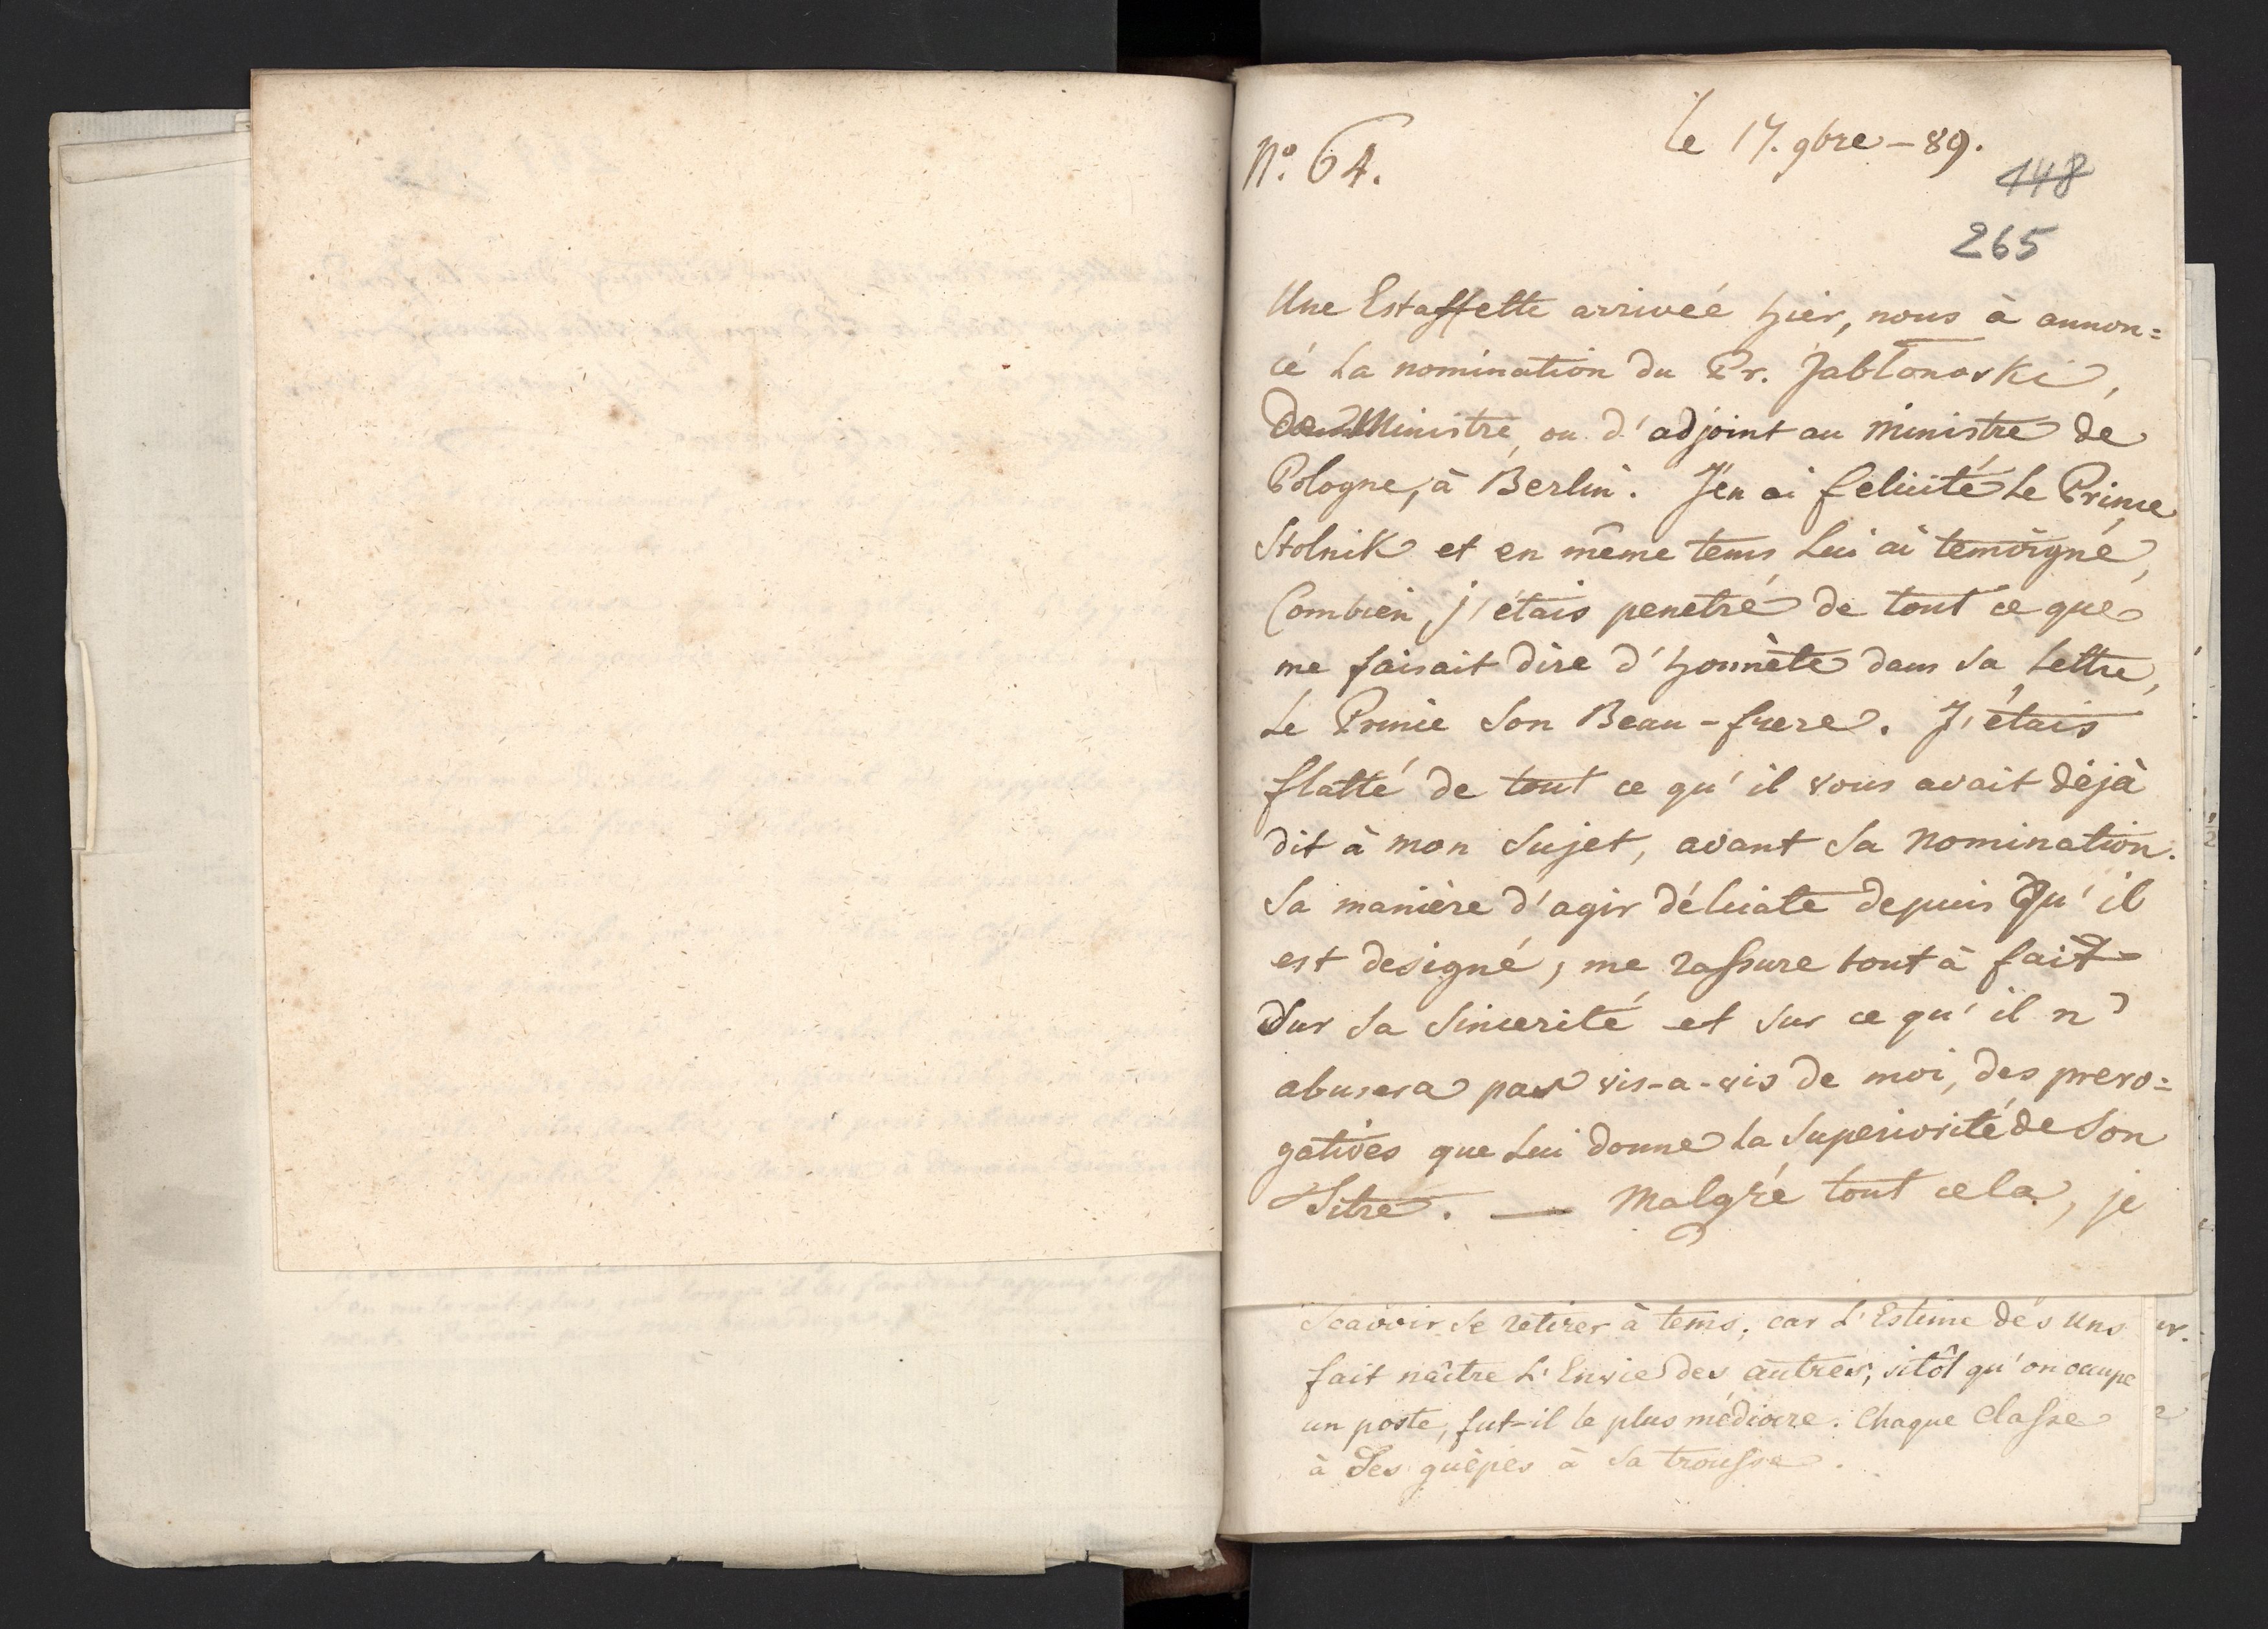 No. 64.
le 17. 9bre - 89.
148
265
Une Estaffette arriveé hier, nous à annon=
cé la nomination du Pr. Jabłonoski,
Ministre, ou d'adjoint au Ministre de
Pologne, à Berlin. J'en ai felicité le Prince
Stolnik et en même tems lui ai temoigné,
Combien, j'étais penetré de tout ce que
me faisait dire d'honnète dans sa lettre,
le Prince son Beau-frere. J'étais
flatté de tout ce qu'il vous avait déjà
dit à mon sujet, avant sa nomination.
Sa manière d'agir délicate depuis Qu'il
est designé, me rassure tout à fait
Sur sa sincerité et sur ce qu'il n'
abusera pas vis-a-vis de moi, des prero=
gatives que lui donne la superiorité de son
Titre. — Malgré tout cela, je
Scavoir se retirer à tems, car L'Estime des uns
fait naître L'Envie des autres, sitôt qu'on occupe
un poste, fut-il le plus médiocre. Chaque Classe
à Ses guêpes à sa trousse.